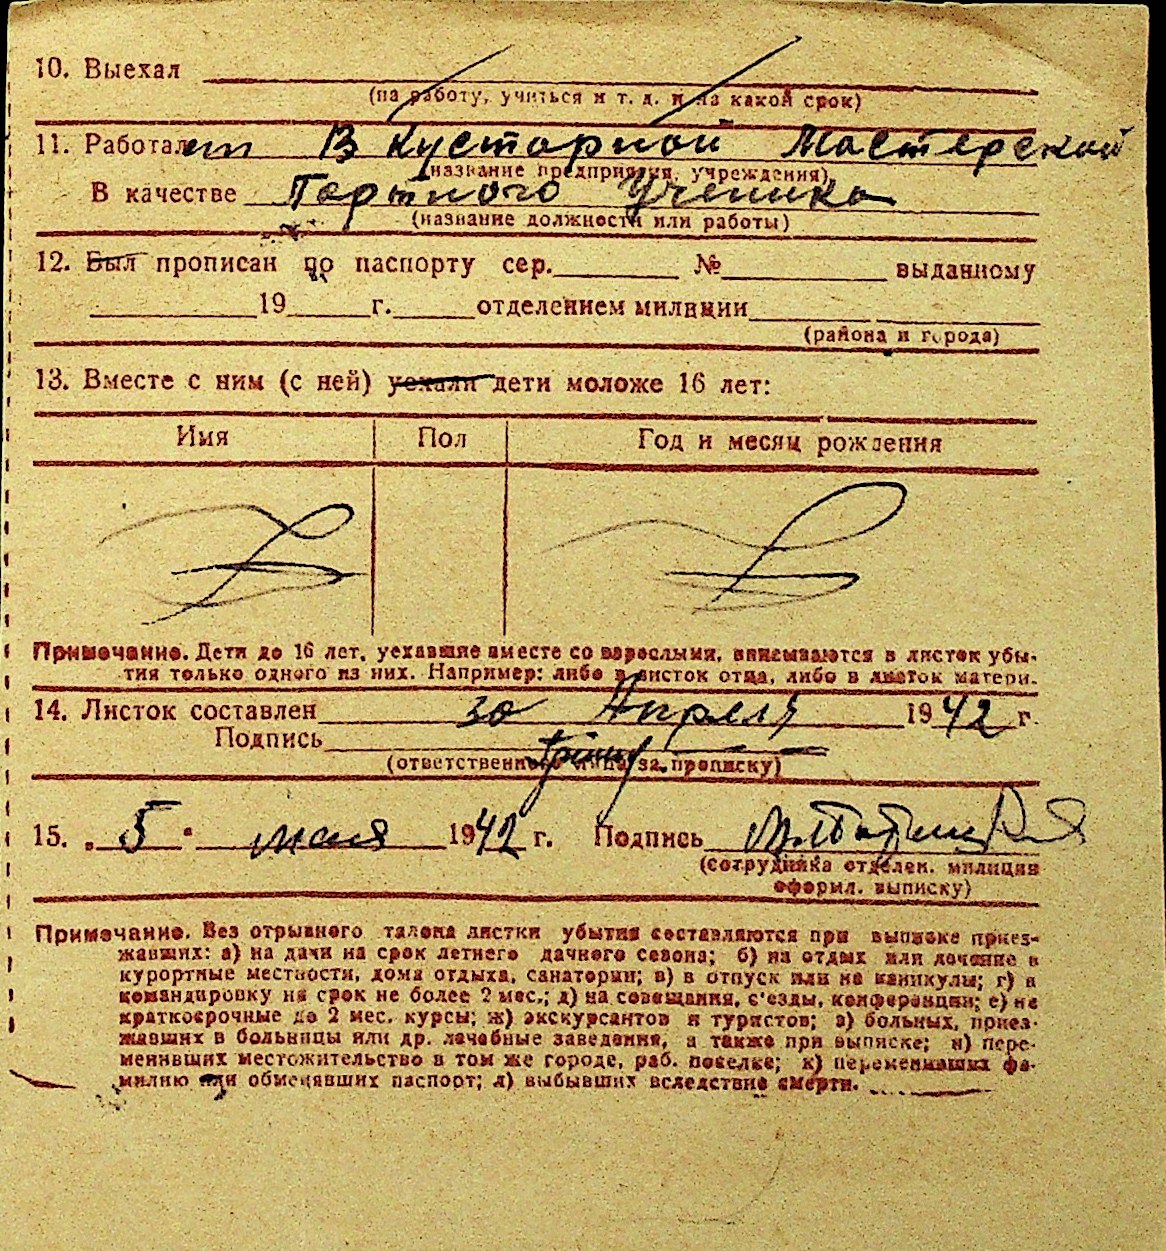 10. Выехал
(на работу, учиться и т. д. и на какой срок)
11. Работает в Кустарной Мастерской
(название предприятия, учреждения)
В качестве Портного Ученика
(название должности или работы)
12. Был прописан по паспорту сер. № выданному
19 г. отделением милиции
(района и города)
13. Вместе с ним (с ней) уехали дети моложе 16 лет:
Имя Пол Год и месяц рождения
Примечание. Дети до 16 лет, уехавшие вместе со взрослыми, вписываются в листок убы-
тия только одного из них. Например: либо в листок отца, либо в листок матери.
14. Листок составлен 30 Апреля 1942 г.
Подпись
(ответственного лица за прописку)
15. „ 5 " мая 1942 г. Подпись
(сотрудника отделен. милиции
оформл. выписку)
Примечание. Без отрывного талона листки убытия составляются при выписке приез-
жавших: а) на дачи на срок летнего дачного сезона; б) на отдых или лечение в
курортные местности, дома отдыха, санатории; в) в отпуск или на каникулы; г) в
командировку на срок не более 2 мес.; д) на совещания, с'езды, конференции; е) на
краткосрочные до 2 мес. курсы; ж) экскурсантов и туристов; з) больных, приез-
жавших в больницы или др. лечебные заведения, а также при выписке; и) пере-
менивших местожительство в том же городе, раб. поселке; к) переменивших фа-
милию или обменявших паспорт; л) выбывших вследствие смерти.